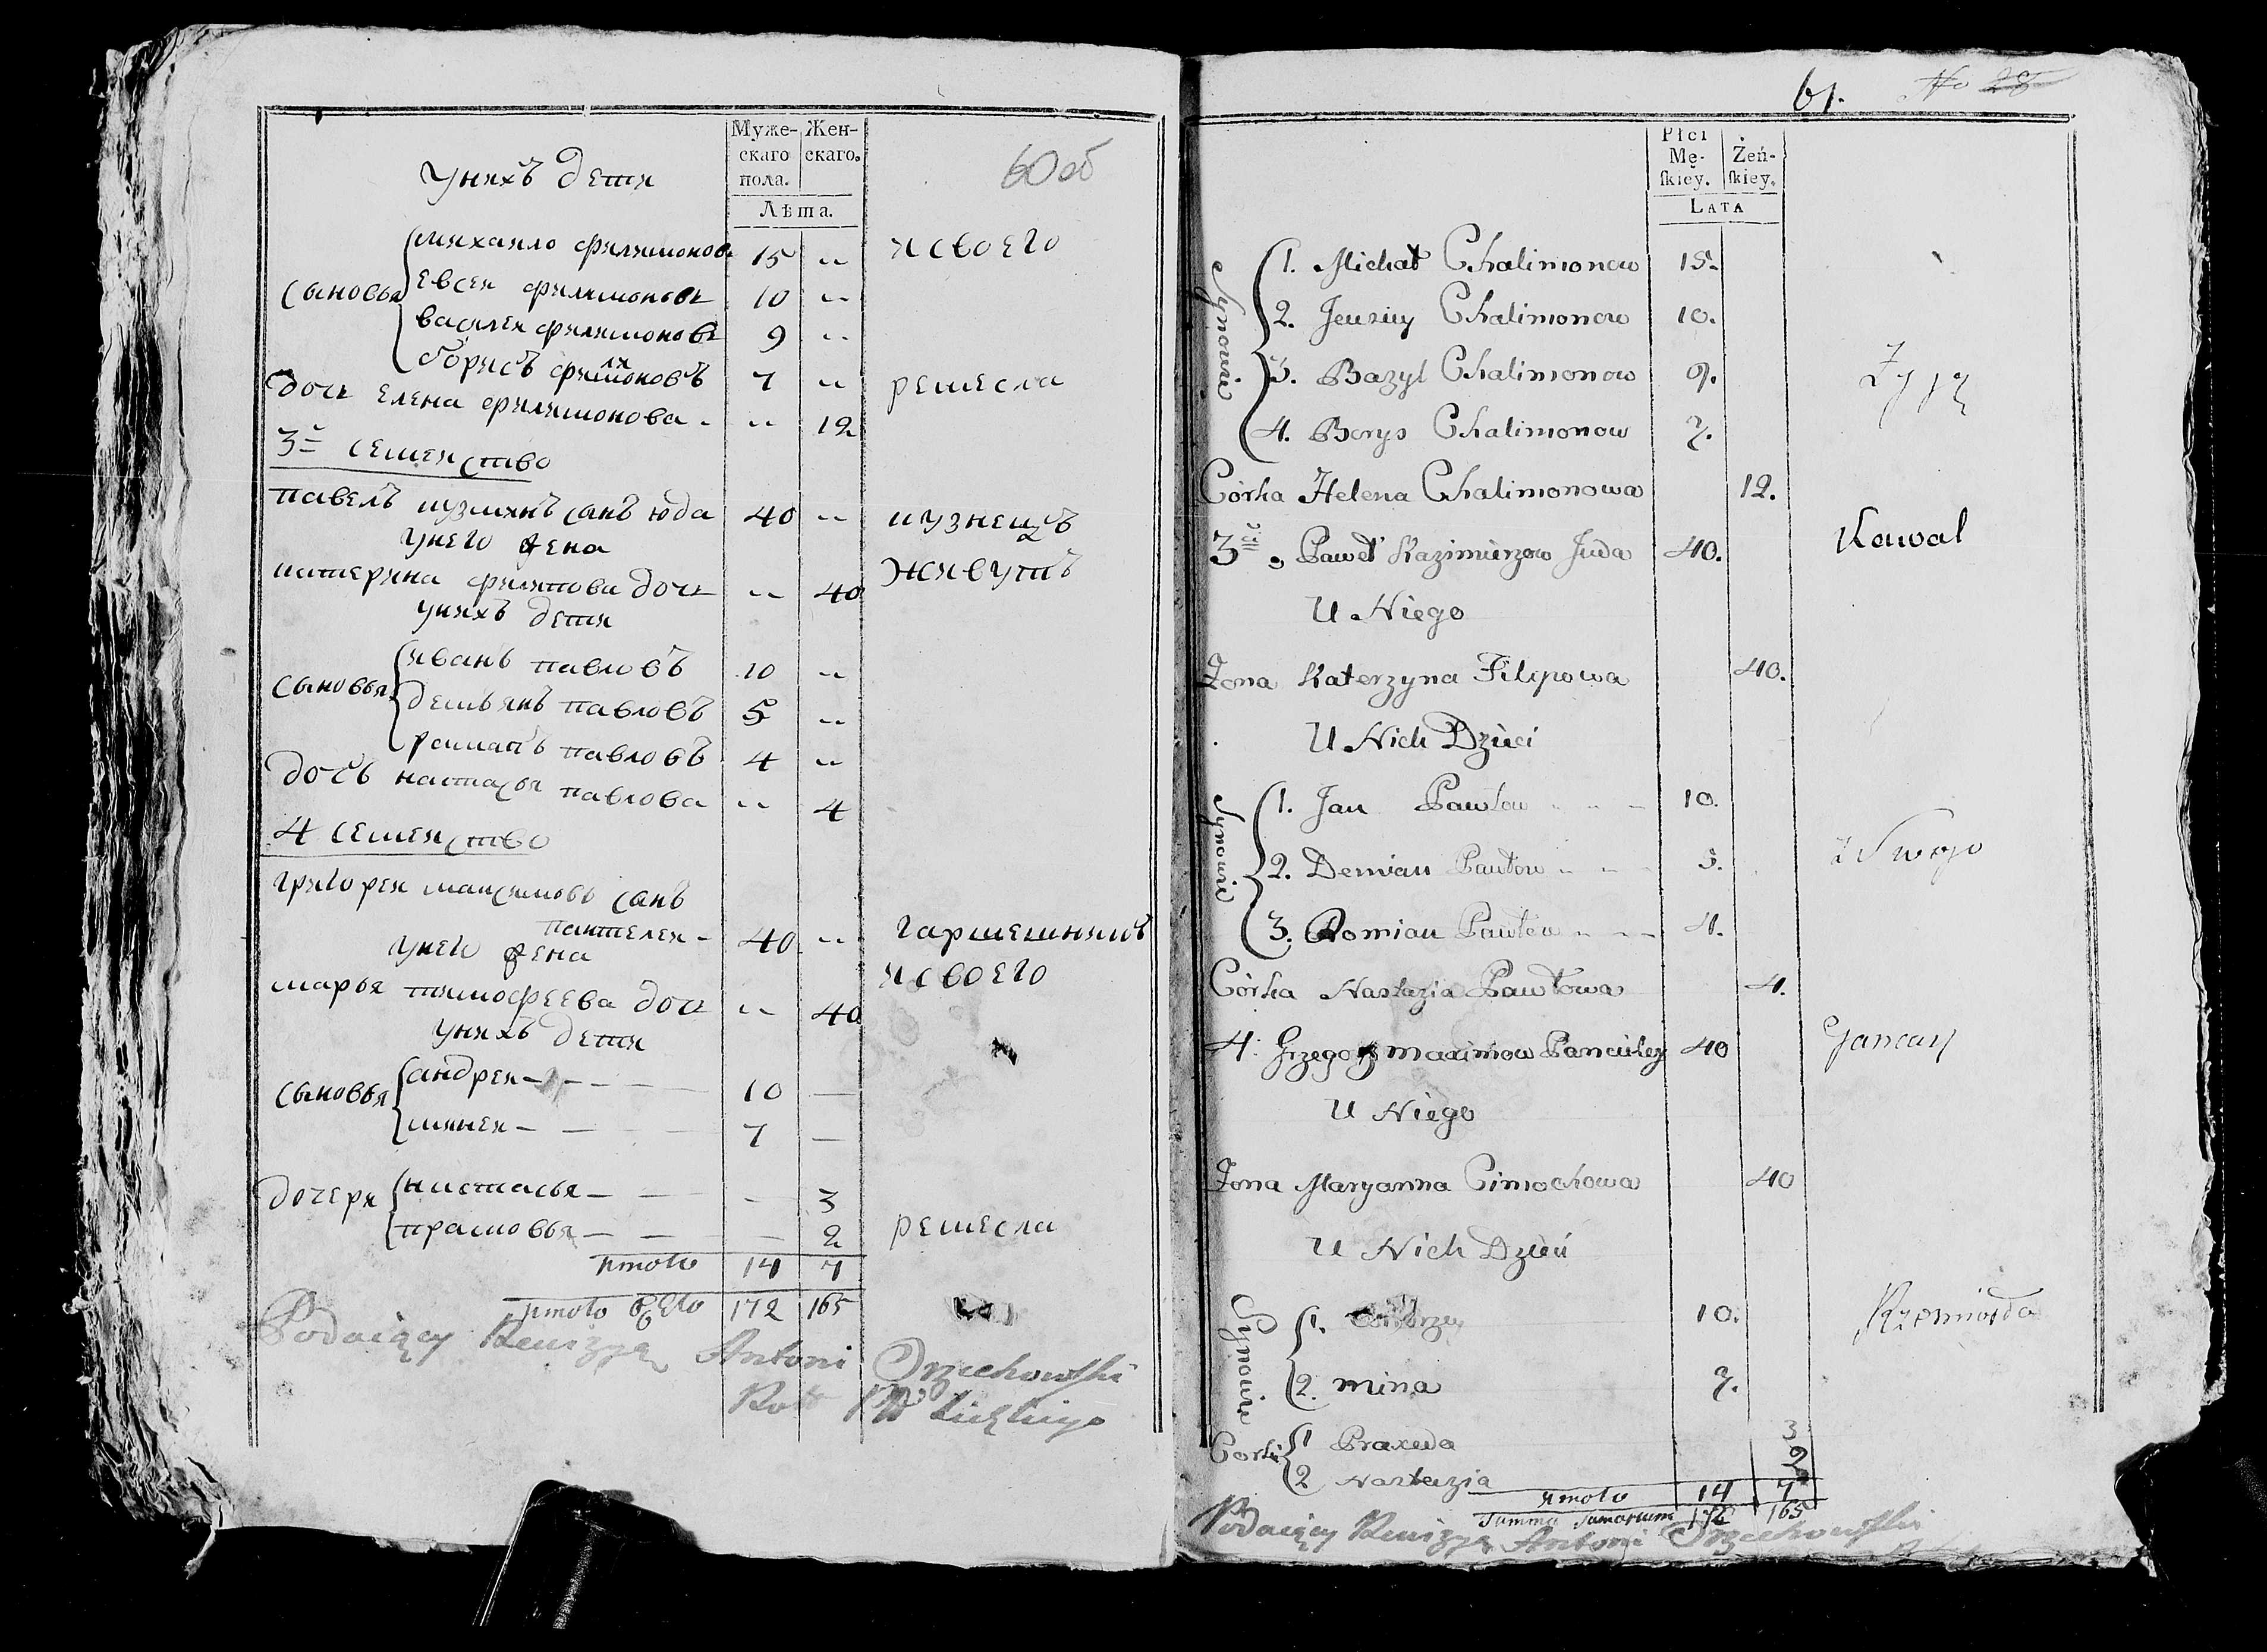 Муже-
скаго
пола.
Жен-
скаго.
Лѣта.
60 об
унихъ дети
сыновья
михаило филимоновъ 15 " исвоего
евсеи филимоновъ 10 "
василеи филимоновъ 9 "
борисъ филимоновъ 7 "
дочь елена филимонова " 12 ремесла
3е семеиство
павелъ кузминъ сынъ юда 40 " кузнецъ
унего жена
катерина филипова дочь " 40 живутъ
унихъ дети
сыновья
иванъ павловъ 10 "
демьянъ павловъ 5 "
романъ павловъ 4 "
дочь настасья павлова " 4
4 семеиство
григореи максимовъ сынъ
пантелеи 40 " гаршешникъ
унего жена исвоего
марья тимофеева дочь " 40
унихъ дети
сыновья
андреи 10 —
минеи 7 —
дочери
настасья — 3
прасковья — 2 ремесла
итого 14 7
итого всего 172 165
Podaiący Rewizyą Antoni Orzechowski
61.
No 28
Płci
Mę-
skiey.
Żeń-
skiey.
LATA
Synowie
1. Michał Chalimonow 15.
2. Jeuziey Chalimonow 10.
3. Bazyl Chalimonow 9. Żyją
4. Borys Chalimonow 7.
Córka Helena Chalimonowa 12.
3ci Paweł Kazimierzow Juda 40. Kowal
U Niego
Żona Katerzyna Filipowa 40.
U Nich Dzieci
Synowie
1. Jan Pawłow 10.
2. Demian Pawłow 5. z Swego
3. Romian Pawłow 4.
Córka Nastazia Pawłowa 4.
4. Grzegorz maximow Pancieley 40 Gancarz
U Niego
Żona Maryanna Cimochowa 40
U Nich Dzieci
Synowie
1. 10. Rzemiosła
2. mina 7.
Corki
1 Praxeda 3
2 Nastazia 2
итого 14 7
Summa Sumarium 172 165
Podaiący Rewizyą Antoni Orzechowski